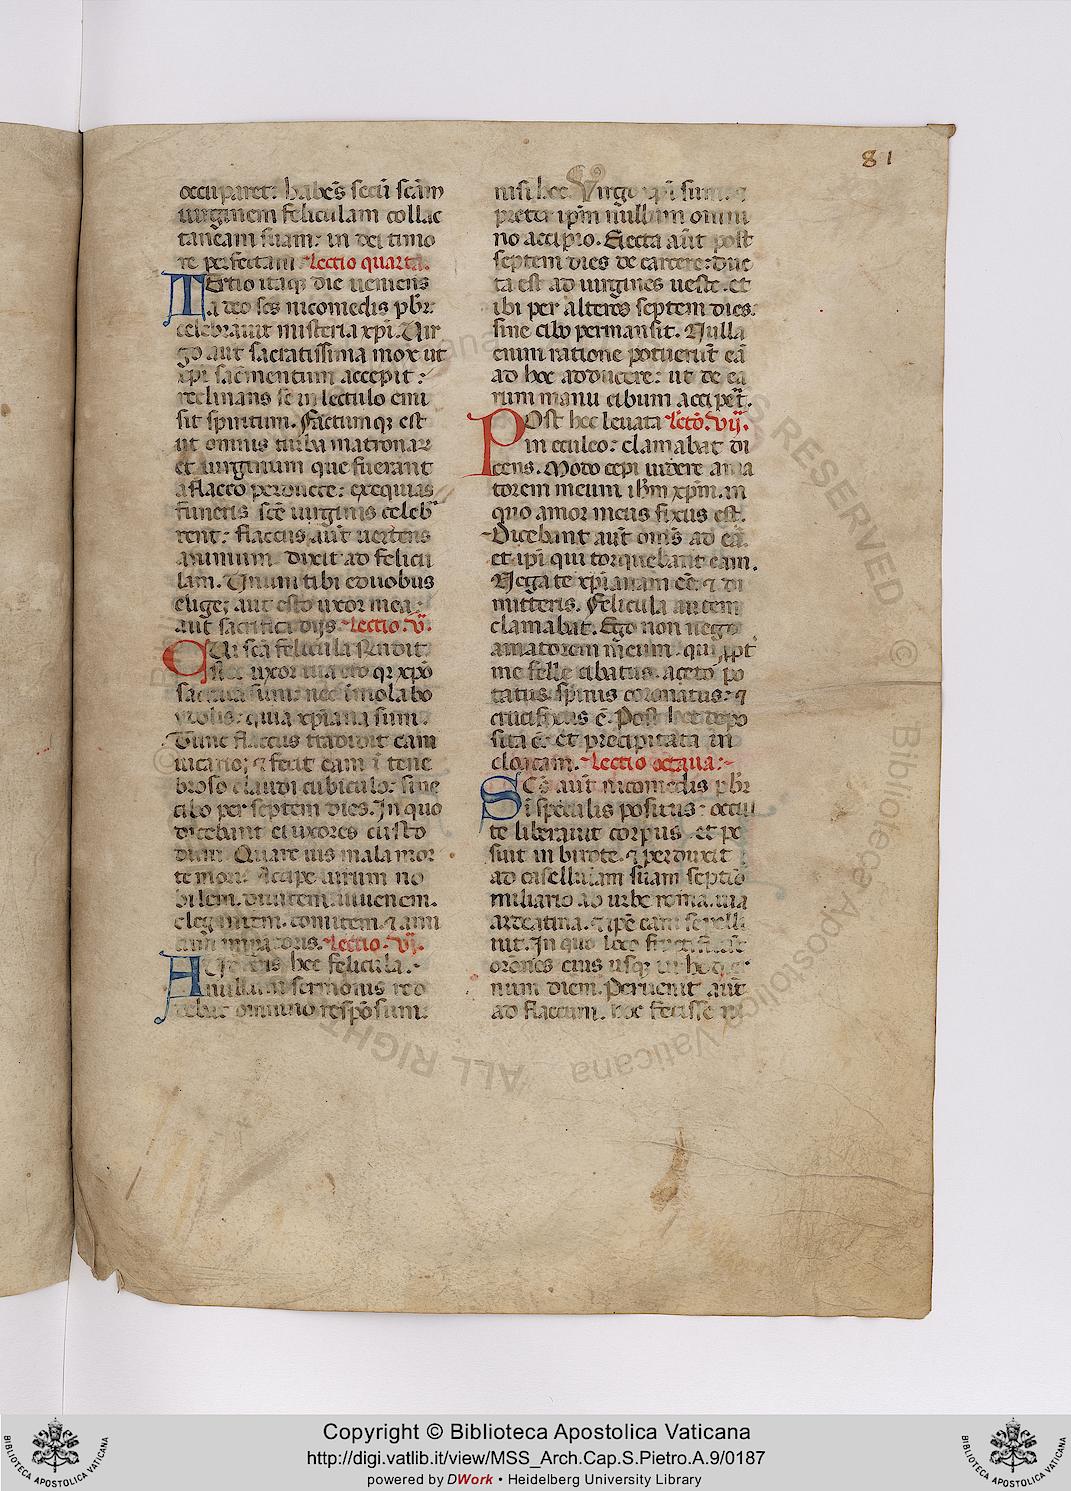 81
occuparet: habe͂s secū sc͂am
uirginem feliculam collac
taneam suam: in dei timo
re perfectam. Lectio quarta.
TErtio itaq; die ueniens
a deo sc͂s nicomedis pb͂r:
celebrauit misteria xp͂i. Uir
go aūt sacratissima mox ut
xp͂i sac͂mentum accepit:
reclinans se in lectulo emi
sit spiritum. Factumq; est
ut omnis turba matronaꝝ
et uirginum que fuerant
a flacco perducte: exequias
funeris sc͂e uirginis celeb
rent: flaccus aūt uertens
animum dixit ad felicu
lam. Unum tibi eduobus
elige; aut esto uxor mea:
aut sacrifica dijs. Lectio. v̄.
CUi sc͂a felicula
uxor tua ero qꝛ xp͂o
sacrata sum: nec īmolabo
ydolis: quia xp͂iana sum.
Tunc flaccus tradidit eam
uicario; ⁊ fecit eam ī tene
broso claudi cubiculo: sine
cibo per septem dies. In quo
dicebant ei uxores custo
dum. Quare uis mala mor
te mori? Accipe uirum no
bilem. diuitem. iuuenem.
elegantem. comitem. ⁊ ami
cum Lectio. vj.
Au hec felicula.
nullum sermonis
debat omnino respōsum:
nisi hoc. Uirgo xp͂i sum. ⁊
preter ip͂m nullum omni
no accipio. Eiecta aūt post
septem dies de carcere: duc
ta est ad uirgines ueste. et
ibi per alteros septem dies.
sine cibo permansit. Nulla
enim ratione potuerūt eā
ad hoc adducere: ut de ea
rum manu cibum acciper͂t.
POst hec leuata Lectō. vij.
in eculeo: clamabat di
cens. Modo cepi uidere ama
torem meum ih͂m xp͂m. in
quo amor meus fixus est.
Dicebant aūt om͂s ad eā.
et ip͂i qui torquebant eam.
Nega te xp͂ianam eē ⁊ di
mitteris. Felicula autem
clamabat. Ego non nego
amatorem meum. qui ꝓpt
me felle cibatus. aceto po
tatus. spinis coronatus: ⁊
crucifixus ē. Post hec depo
sita ē. et precipitata in
cloacam. Lectio octaua:
SC͂s aūt nicomedis pb͂r
ī speculis positus: occul
te liberauit corpus. et po
suit in birote. ⁊ perduxit
ad casellulam suam septiō
miliario ab urbe roma. uia
ardeatina. ⁊ ip͂e eam sepelli
uit. In quo loco
orōnes eius usq; in hodier
num diem. Peruenit aūt
ad flaccum. hoc fecisse ni
Copyright © Biblioteca Apostolica Vaticana
http://digi.vatlib.it/view/MSS_Arch.Cap.S.Pietro.A.9/0187
powered by DWork • Heidelberg University Library
BIBLIOTECA APOSTOLICA VATICANA
BIBLIOTECA APOSTOLICA VATICANA
© Biblioteca Apostolica Vaticana
ALL RIGHTS RESERVED